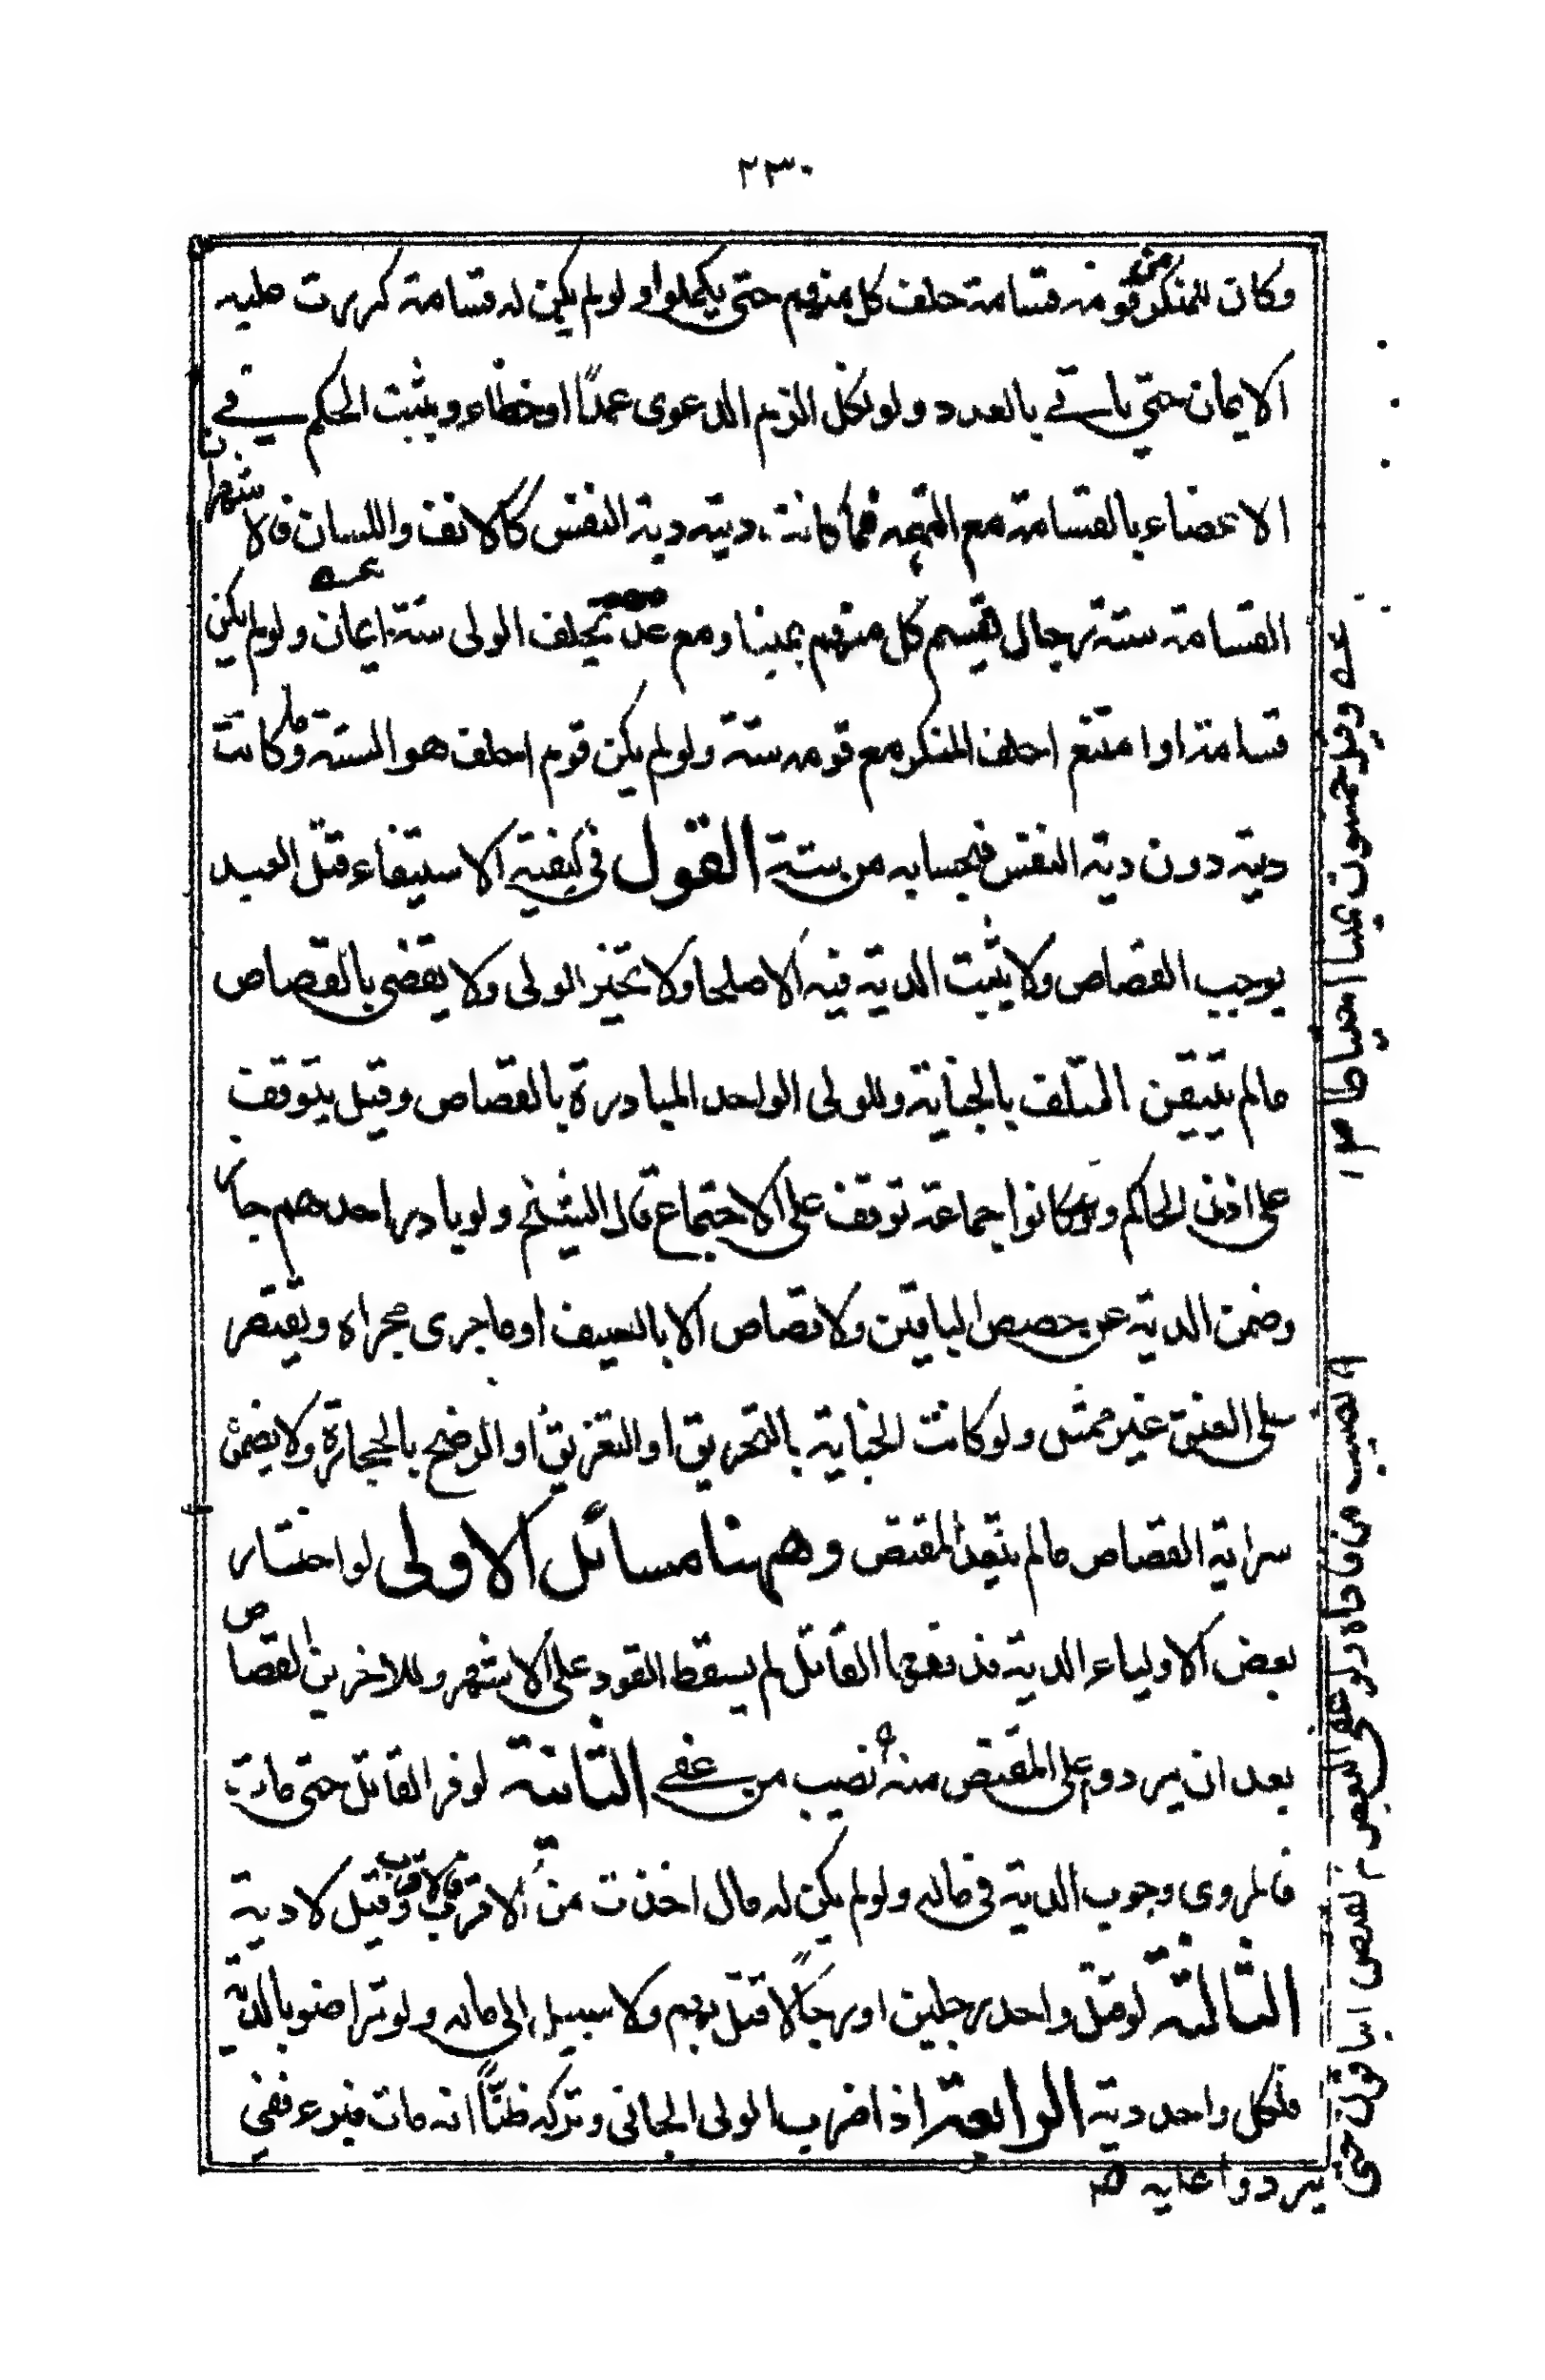 ٢٣٠
وكان للمنكر من قومه قسامة حلف كل منهم حتى يكملوا ولو لم يكن له قسامة كررت عليه
الايمان حتى ياتي بالعدد ولو نكل الزم الدعوى عمدًا او خطاء ويثبت الحكم في
الاعضاء بالقسامة مع التهمه فما كانت ديته دية النفس كالانف واللسان فالاشهر ان
القسامة ستة رجال يقسم كل منهم يمينا ومع عدم يحلف الولى ستة ايمان ولو لم يكن
قسامة او امتنع احلف المنكر مع قومه ستة ولو لم يكن قوم احلف هو الستة وما كانت
ديته دون دية النفس فبحسابه من ستة القول في كيفية الاستيفاء قتل العمد
يوجب القصاص ولا يثبت الدية فيه الا صلحا ولا تخير الولى ولا يقضى بالقصاص
مالم يتيقن التلف بالجناية وللولى الواحد المبادرة بالقصاص وقيل يتوقف
على اذن الحاكم ولو كانوا جماعة توقف على الاجتماع قال الشيخ ولو بادر احدهم جاز
وضمن الدية عن حصص الباقين ولا قصاص الا بالسيف او ما جرى مجراه ويقتصر
على العنق غير ممثل ولو كانت الجناية بالتحريق او التغريق او الرضخ بالحجارة ولا يضمن
سراية القصاص مالم يتعد المقتص وههنا مسائل الاولى لو اختار
بعض الاولياء الدية فدفعها القاتل لم يسقط القود على الاشهر وللاخرين القصاص
بعد ان يردوا على المقتص منه نصيب من عفى الثانية لو فر القاتل حتى مات
فالمروى وجوب الدية في ماله ولو لم يكن له مال اخذت من الاقرب فالاقرب وقيل لا دية
الثالثة لو قتل واحد رجلين او رجالًا قتل بهم ولا سبيل الى ماله ولو تراضوا بالدية
فلكل واحد دية الرابعة اذا ضرب الولى الجانى وتركه ظنًّا انه مات فبرء ففي
وقيل خمسون يمينا احتياطا
نصيب من فاداه ولو عفى البعض لم يقتص الباقون حتى
يردوا عليه